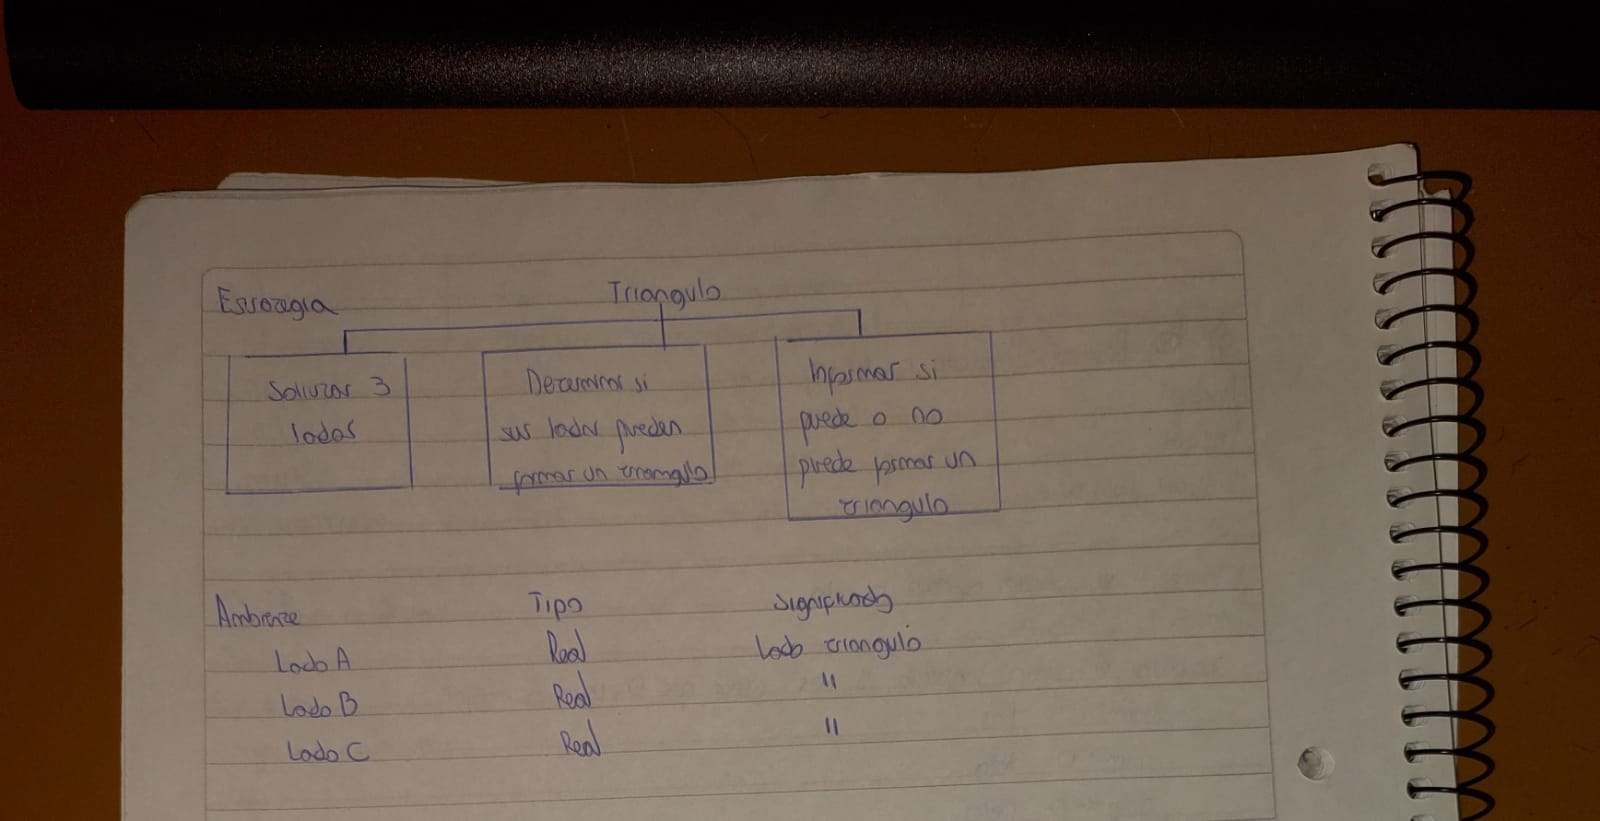 Estrategia
Triangulo
Solicitar 3
lados
Determinar si
sus lados pueden
formar un triangulo
Informar si
puede o no
puede formar un
triangulo
Ambiente Tipo Significado
Lado A Real Lado triangulo
Lado B Real "
Lado C Real "